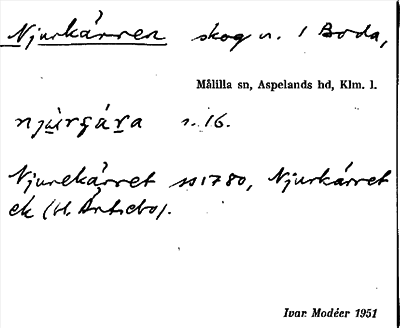 Njurkärren skog n. 1 Boda,
Målilla sn, Aspelands hd, Klm. l.
s. 16.
Njurekärret 1780, Njurkärret
ek (H. Årtsebo).
Ivar Modéer 1951